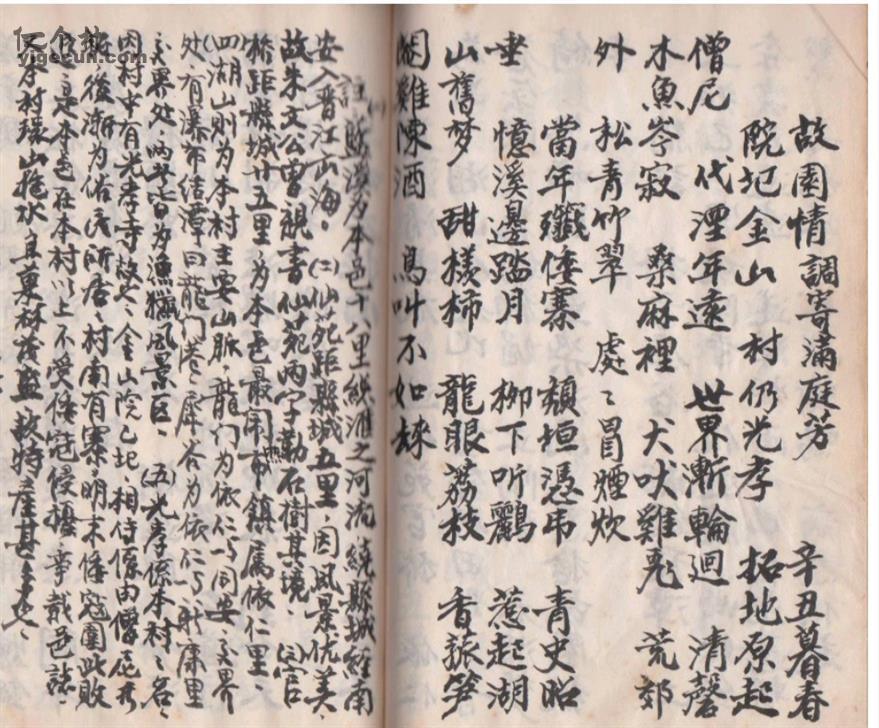 故園情調寄滿庭芳 辛丑暮春
院圮金山 村仍光孝 拓地原起
僧尼 代湮年遠 世界漸輪迴 清磬
木魚岑寂 桑麻裡 犬吠雞飛 荒郊
外 松青竹翠 處〻冒煙炊
當年殲倭寨 頹垣憑弔 青史昭
垂 憶溪邊踏月 柳下听鸝 惹起湖
山舊夢 甜樣柿 龍眼荔枝 香菰笋
園雞陳酒 鳥叫不如歸
註 (一)藍溪為本邑十八里納滙之河流 繞縣城經南
安入晋江而海。(二)仙苑距縣城五里 因風景优美、
故朱文公曾親書仙苑兩字勒石樹其境、(三)官
橋距縣城廿五里、為本邑最闹市鎮屬依仁里、
(四)湖山則为本村主要山脈、龍门为依仁与同安交界
处、有瀑布结潭曰龍门
交界处、
风景区、(五)光孝係本村之名、
因村中有光孝寺故名、金山院已圮、相传係由僧尼
後漸为佑民所居、村南有寨、明末倭寇圍此敗
是本邑在本村以上不受倭寇侵擾、事載邑誌、
本村環山抱水、且菓林茂盛 故特産甚多
yigecun.com